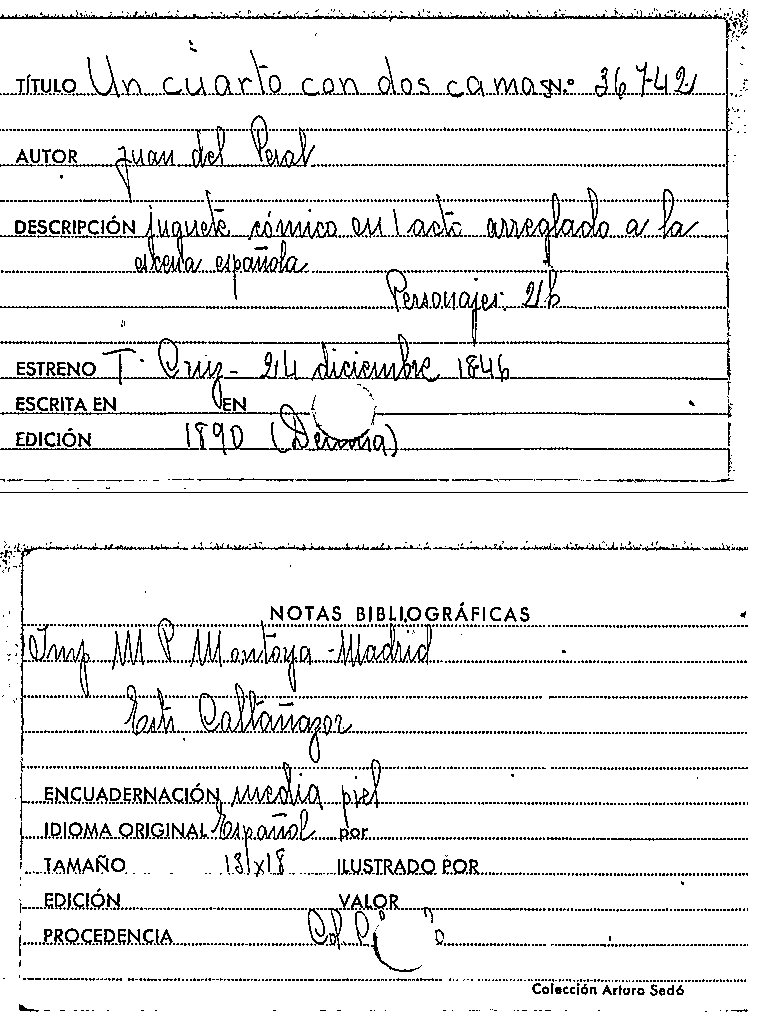 TÍTULO Un cuarto con dos camas N.º 36742
AUTOR Juan del Peral
DESCRIPCIÓN juguete cómico en 1 acto arreglado a la
escena española
Personajes: 2h
ESTRENO T. Cruz - 24 diciembre 1846
ESCRITA EN EN
EDICIÓN 1890
NOTAS BIBLIOGRÁFICAS
Imp M P Montoya - Madrid
Estr. Caltañazor
ENCUADERNACIÓN media piel
IDIOMA ORIGINAL Español por
TAMAÑO 13x18 ILUSTRADO POR
EDICIÓN VALOR
PROCEDENCIA Col. P
Colección Arturo Sedó